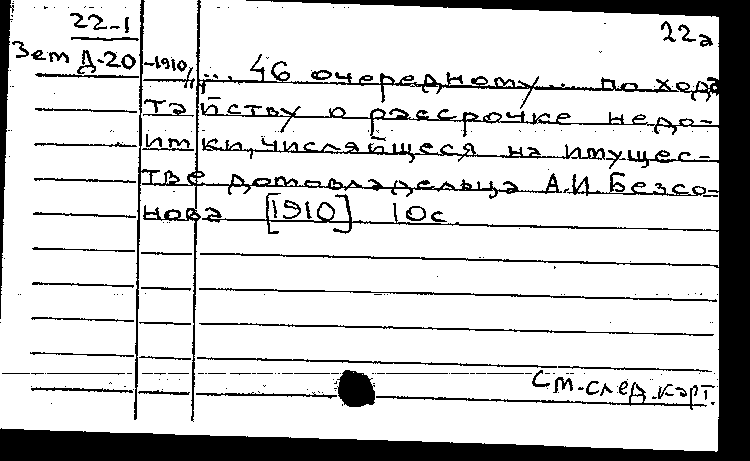 22-1
22а
Зем Д-20 -1910
"... 46 очередному... по хода
тайству о рассрочке недо-
имки, числящейся на имущес-
тве домовладельца А.И. Безсо-
нова [1910] 10с.
См. след. карт.